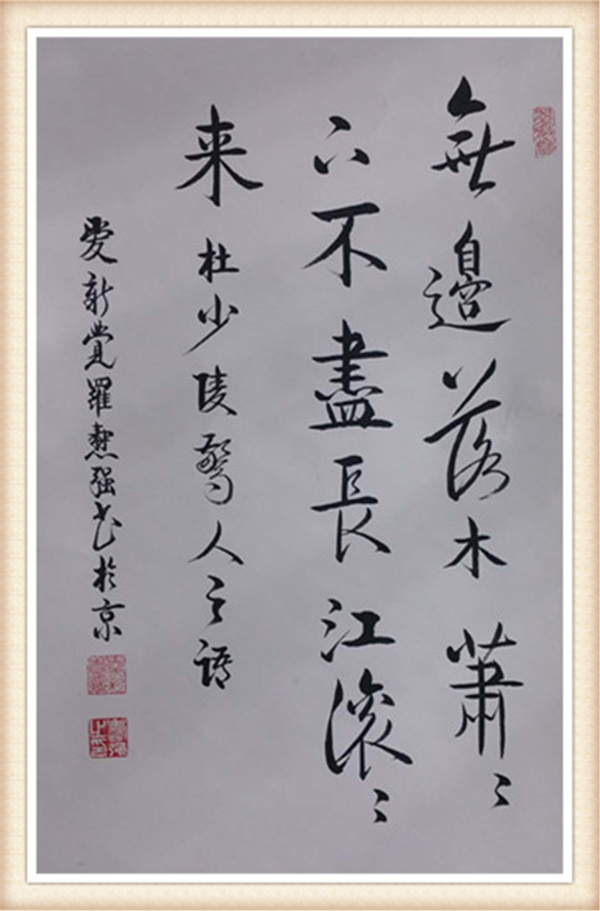 無邊落木蕭〻
下不盡長江滚〻
来 杜少陵驚人之語
愛新覺羅强书於京